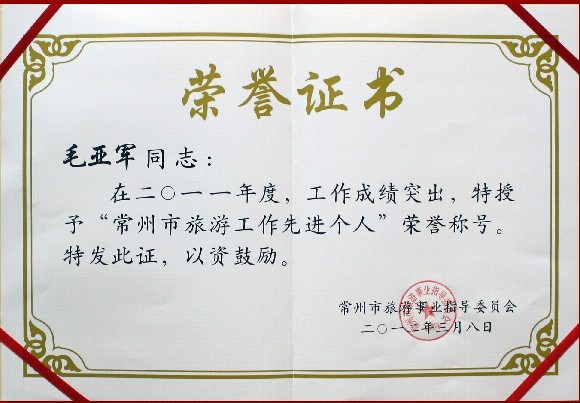 荣誉证书
毛亚军同志：
在二〇一一年度，工作成绩突出，特授
予“常州市旅游工作先进个人”荣誉称号。
特发此证，以资鼓励。
常州市旅游事业指导委员会
二〇一二年三月八日